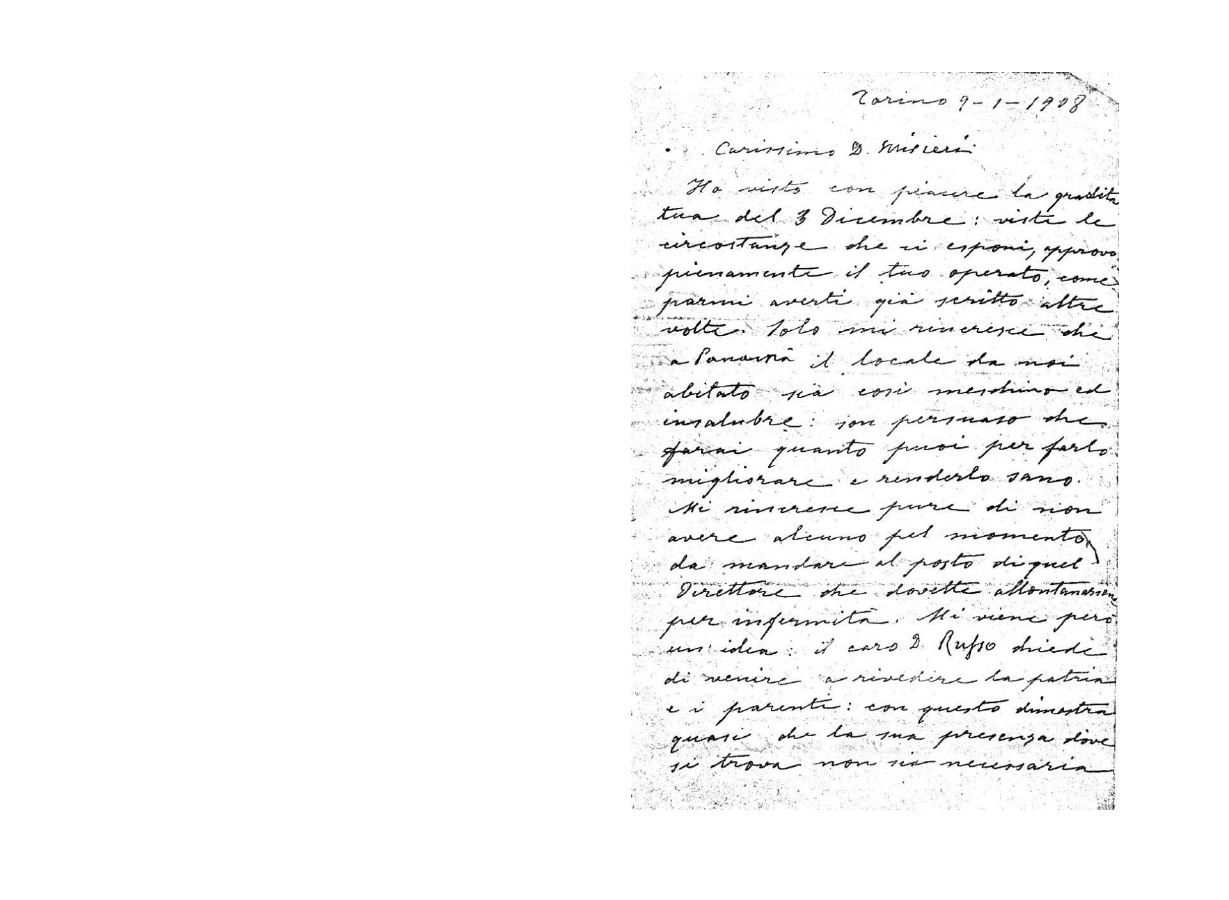 Torino 9-1-1908
Carissimo D. Misieri
Ho visto con piacere la gradita
tua del 3 Dicembre: viste le
circostanze che ci esponi, approvo
pienamente il tuo operato, come
parmi averti già scritto altre
volte. Solo mi rincresce che
a Panamà il locale da noi
abitato sia così meschino ed
insalubre: son persuaso che
farai quanto puoi per farlo
migliorare e renderlo sano.
Mi rincresce pure di non
avere alcuno pel momento
da mandare al posto di quel
Direttore che dovette allontanarsene
per infermità. Mi viene però
un' idea: il caro D. Russo chiede
di venire a rivedere la patria
e i parenti: con questo dimostra
quasi che la sua presenza dove
si trova non sia necessaria